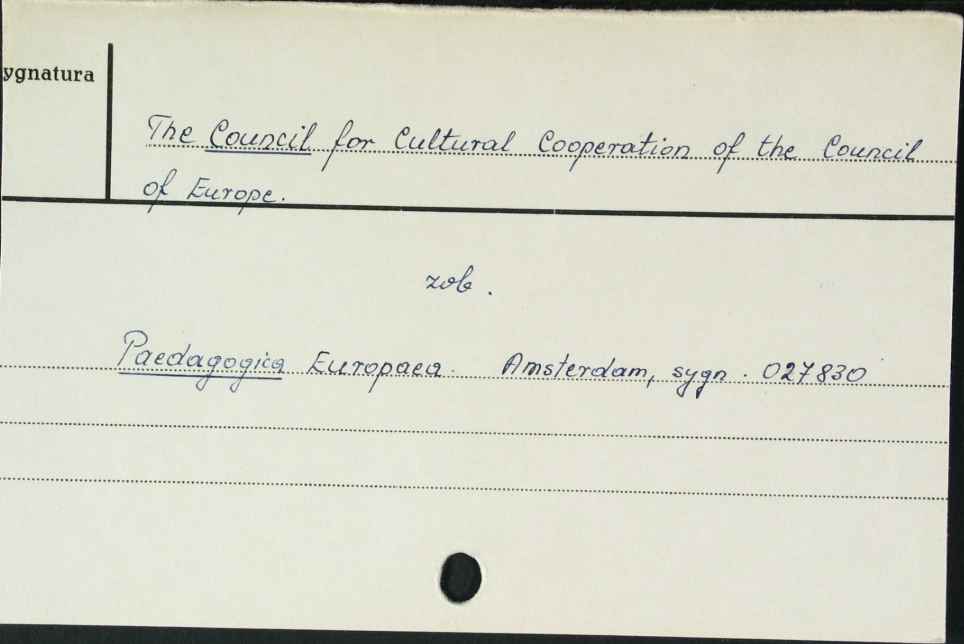 ygnatura
The Council for Cultural Cooperation of the Council
of Europe.
zob.
Paedagogica Europaea. Amsterdam, sygn. 027830